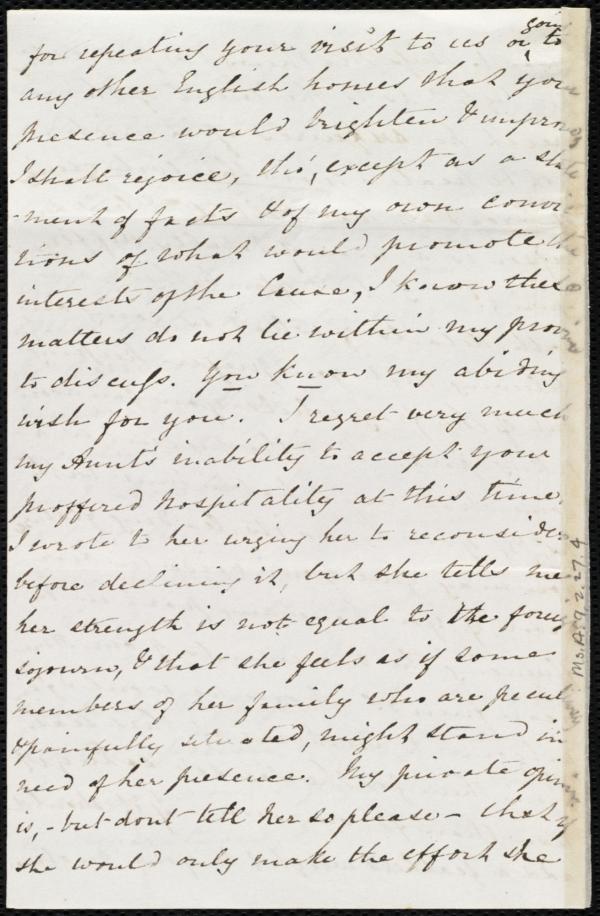 for repeating your visit to us or going to
any other English homes that your
presence would brighten & improve
I shall rejoice, tho', except as a state
-ment of facts & of my own convic
tions of what would promote the
interests of the Cause, I know these
matters do not lie within my province
to discuss. You know my abiding
wish for you. I regret very much
my Aunt's inability to accept your
proffered hospitality at this time,
I wrote to her urging her to reconsider
before declining it, but she tells me
her strength is not equal to the
sojourn, & that she feels as if some
members of her family who are peculiarly
& painfully situated, might stand in
need of her presence. My private opinion
is, - but dont tell her so please - that if
she would only make the effort she
Ms.A.9.2.27.4